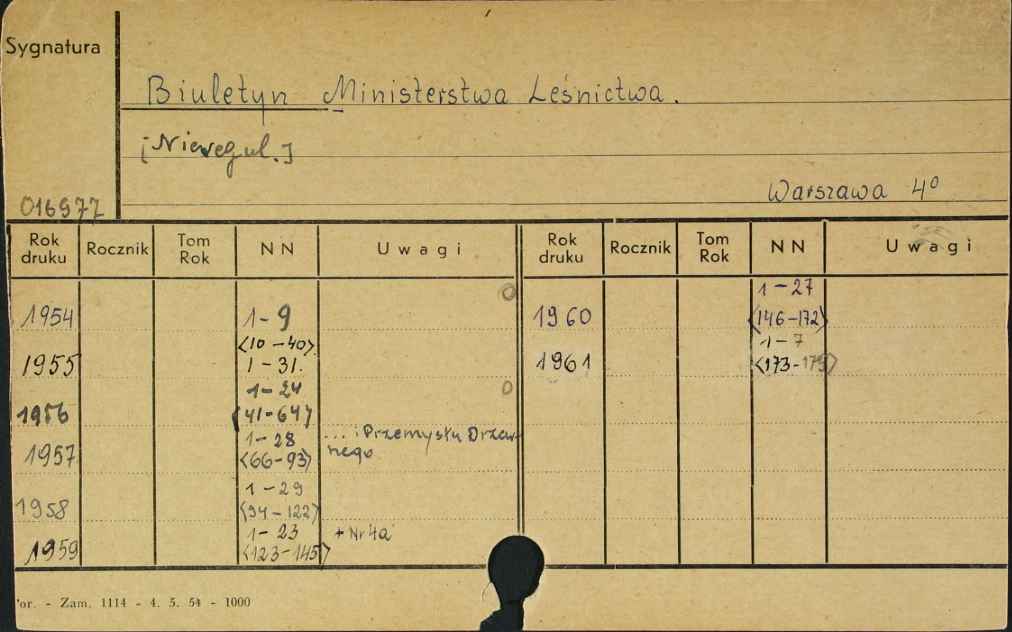 Sygnatura
Biuletyn Ministerstwa Leśnictwa.
[Nieregul.]
Warszawa 4°
016977
Rok druku Rocznik Tom Rok NN Uwagi Rok druku Rocznik Tom Rok NN Uwagi
1954 1-9
1955 <10-40> 1-31.
1956 1-24 <41-64>
1957 1-28 <66-93> ... i Przemysłu Drzewnego
1958 1-29 <94-122>
1959 1-23 <123-145> + Nr 4a
1960 1-27 <146-172>
1961 1-7 <173-179>
or. - Zam. 1114 - 4. 5. 54 - 1000